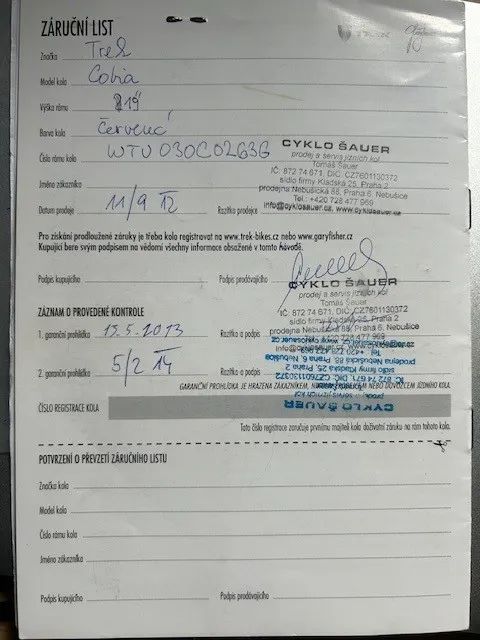 ZÁRUČNÍ LIST
TREK
Značka Trek
Model kola Cobia
Výška rámu 19"
Barva kola Červená
Číslo rámu kola WTU 030C0263G
CYKLO ŠAUER
prodej a servis jízních kol
Tomáš Šauer
IČ: 872 74 671, DIČ: CZ7601130372
sídlo firmy Kladská 25, Praha 2
prodejna Nebušická 88, Praha 6, Nebušice
Tel.: +420 728 477 969
info@cyklosauer.cz, www.cyklosauer.cz
Jméno zákazníka
Datum prodeje 11/9 12 Razítko prodejce
Pro získání prodloužené záruky je třeba kolo registrovat na www.trek-bikes.cz nebo www.garyfisher.cz
Kupující bere svým podpisem na vědomí všechny informace obsažené v tomto návodě.
Podpis kupujícího Podpis prodávajícího
CYKLO ŠAUER
prodej a servis jízních kol
Tomáš Šauer
IČ: 872 74 671, DIČ: CZ7601130372
sídlo firmy Kladská 25, Praha 2
prodejna Nebušická 88, Praha 6, Nebušice
Tel.: +420 728 477 969
ZÁZNAM O PROVEDENÉ KONTROLE
1. garanční prohlídka 15.5.2013 Razítko a podpis
2. garanční prohlídka 5/2 14 Razítko a podpis
CYKLO ŠAUER
prodej a servis jízních kol
IČ: 872 74 671, DIČ: CZ7601130372
sídlo firmy Kladská 25, Praha 2
prodejna Nebušická 88, Praha 6 Nebušice
Tel.: +420 728 477 969
GARANČNÍ PROHLÍDKA JE HRAZENA ZÁKAZNÍKEM, NEBO DOVOZCEM JÍZDNÍHO KOLA.
ČÍSLO REGISTRACE KOLA
Toto číslo registrace zaručuje prvnímu majiteli kola doživotní záruku na rám tohoto kola.
POTVRZENÍ O PŘEVZETÍ ZÁRUČNÍHO LISTU
Značka kola
Model kola
Číslo rámu kola
Jméno zákazníka
Podpis kupujícího Podpis prodávajícího